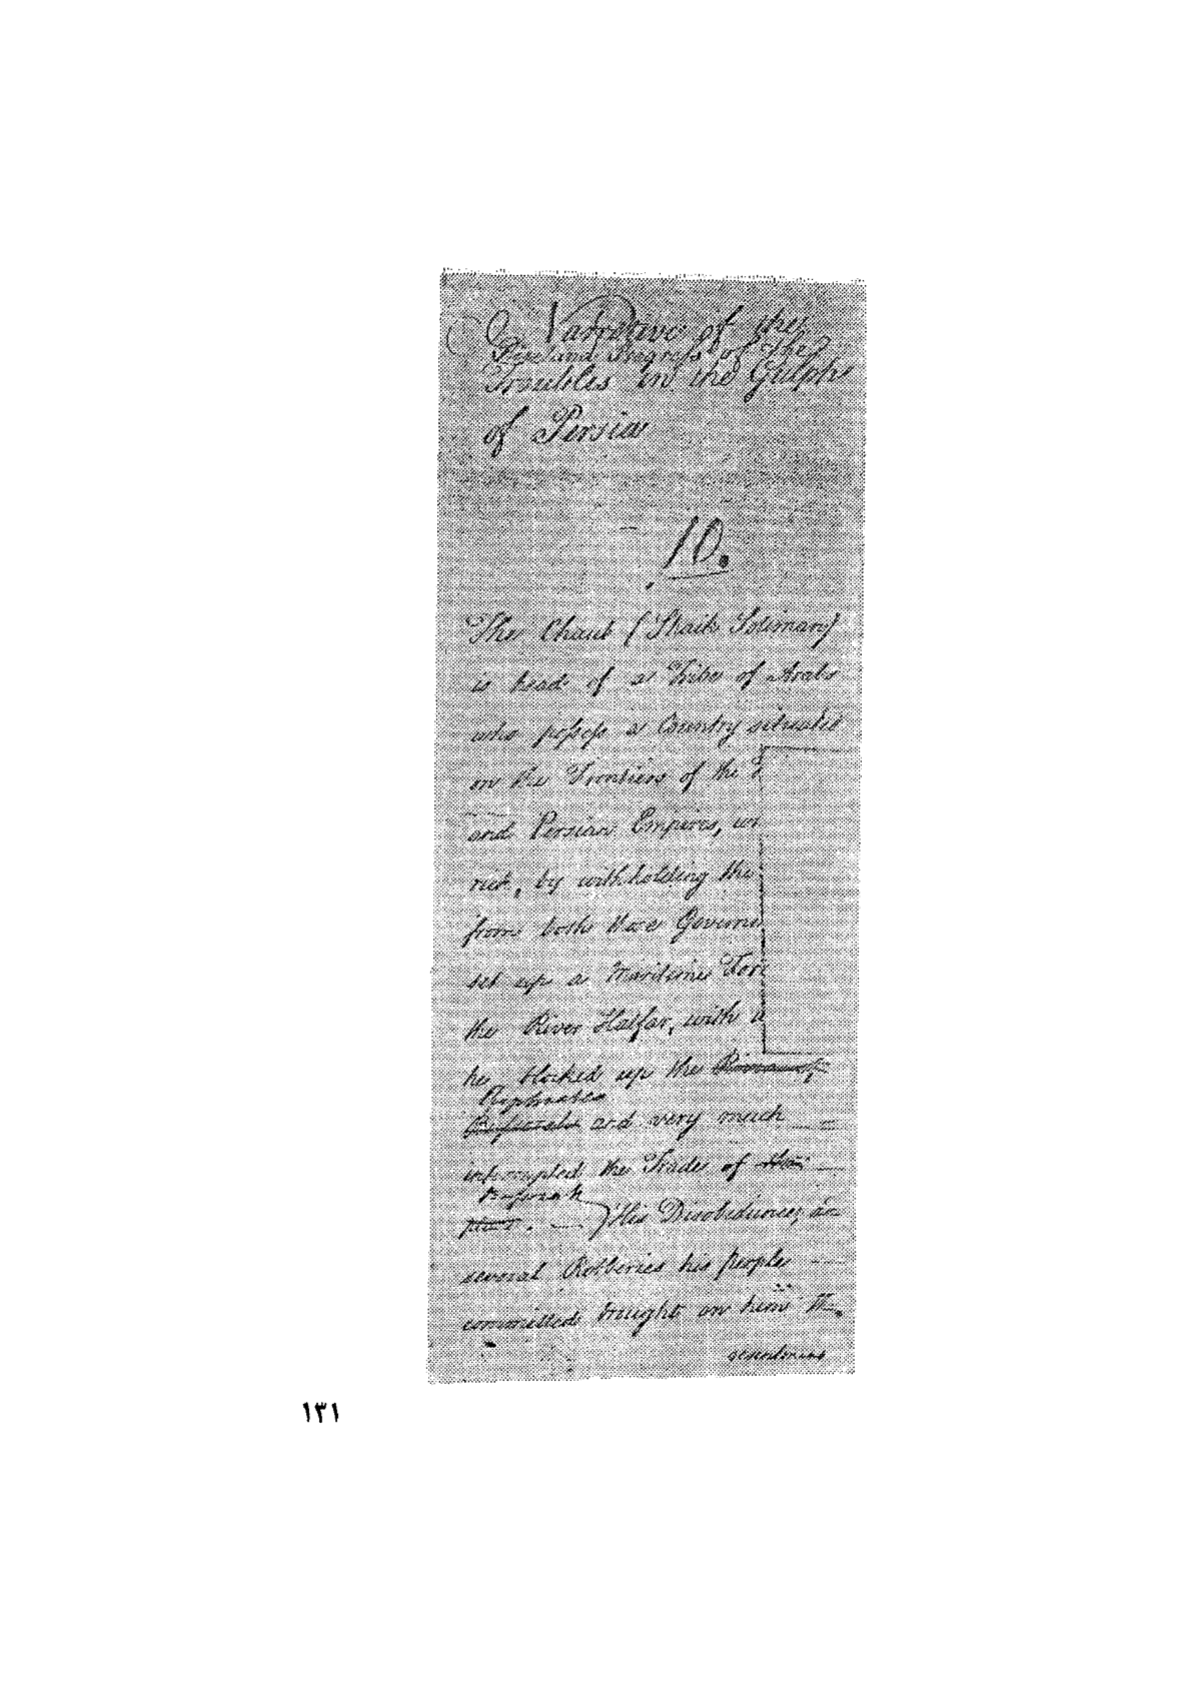 A Narrative of the
Rise and Progress of the
Troubles in the Gulph
of Persia
10.
The Chaub (Shaik Soliman)
is head of a Tribe of Arabs
who possess a Country situated
on the Frontiers of the
and Persian Empires,
by withholding the
from both these
set up a Maritime
the River Haffar, with
he blocked up the
Euphrates
and very much
interrupted the Trade of
Bussorah
His Disobedience,
several Robberies his people
committed brought on him
١٣١